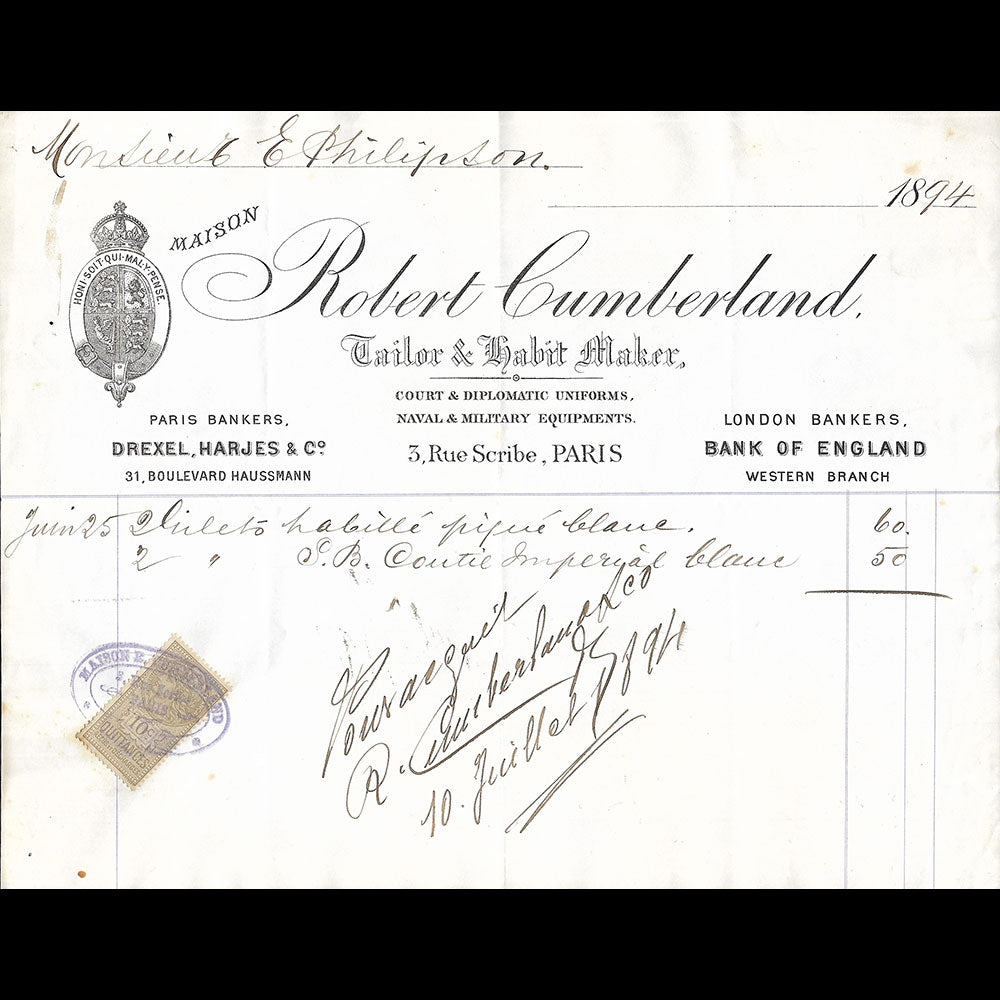 Monsieur E Philipson.
1894
HONI·SOIT·QUI·MAL·Y·PENSE
MAISON
Robert Cumberland,
Tailor & Habit Maker,
COURT & DIPLOMATIC UNIFORMS,
NAVAL & MILITARY EQUIPMENTS.
3, Rue Scribe, PARIS
PARIS BANKERS,
DREXEL, HARJES & Cº
31, BOULEVARD HAUSSMANN
LONDON BANKERS,
BANK OF ENGLAND
WESTERN BRANCH
Juin 25 2 Gilets habillé piqué blanc. 60.
2 " S.B. Coutil Imperial blanc 50
Pour acquit
R. Cumberland & Co
10. Juillet 1894
MAISON
QUITTANCES